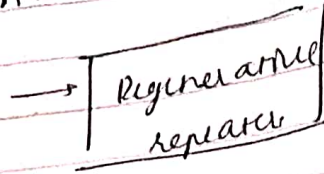 Regenerative
repeater